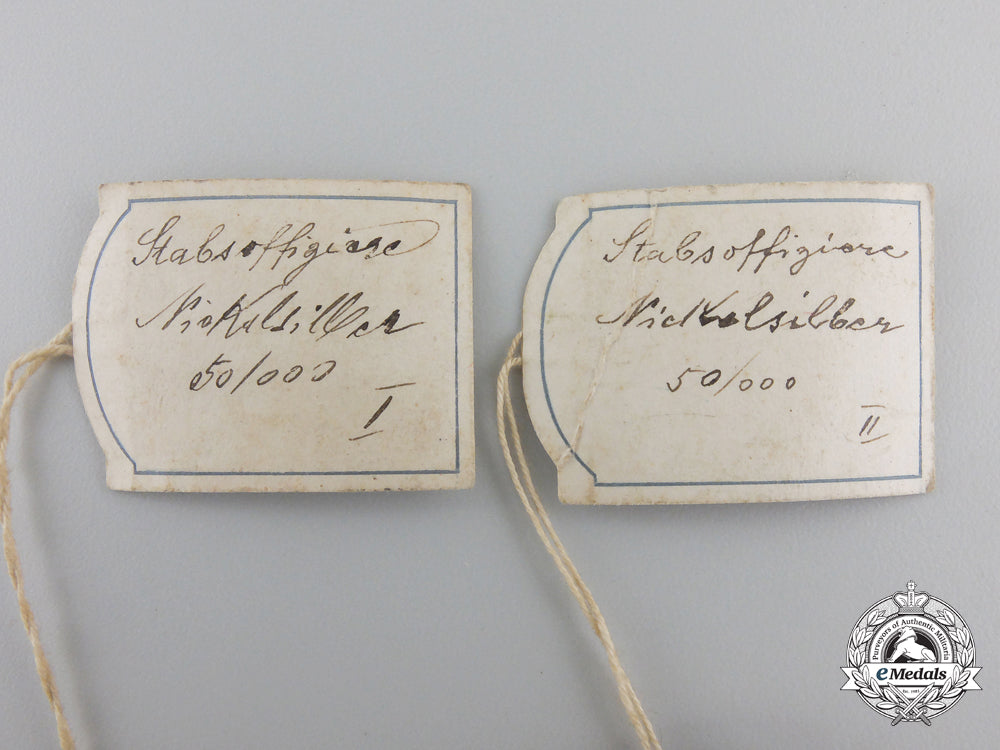 Stabsoffiziere
Nickelsilber
50/000
I
Stabsoffiziere
Nickelsilber
50/000
II
Purveyors of Authentic Militaria
eMedals
Est. 1985